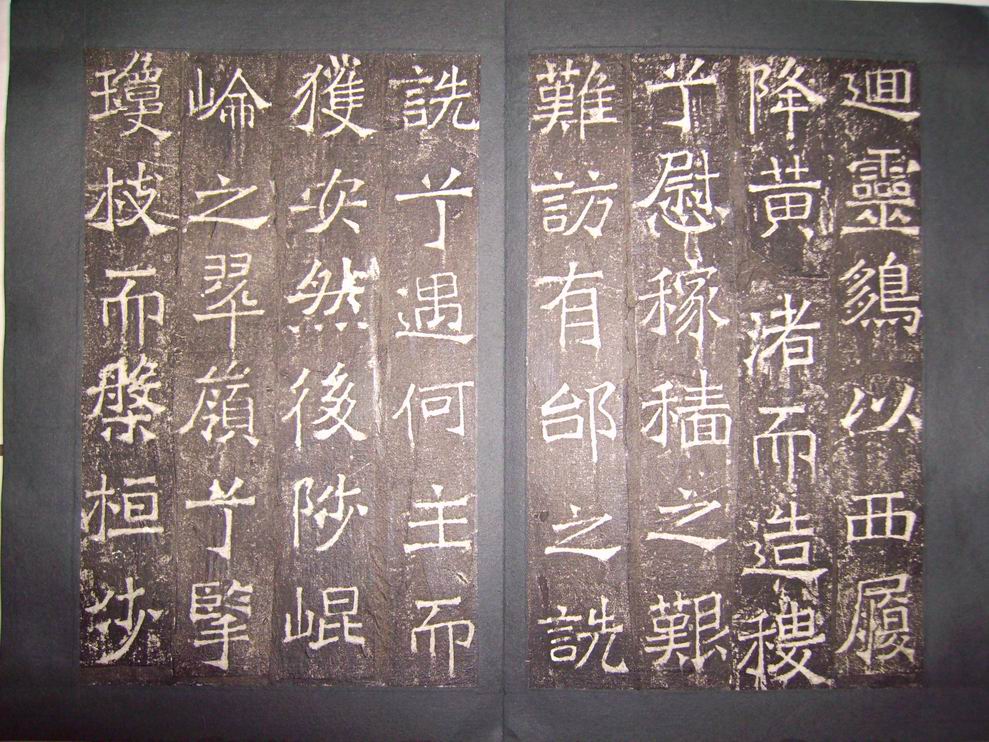 迴靈鷄以西履
降黃渚而造稷
兮慰稼穡之艱
難訪有邰之詵
詵兮遇何主而
獲安然後陟崐
崘之翠嶺兮擥
瓊枝而槃桓步